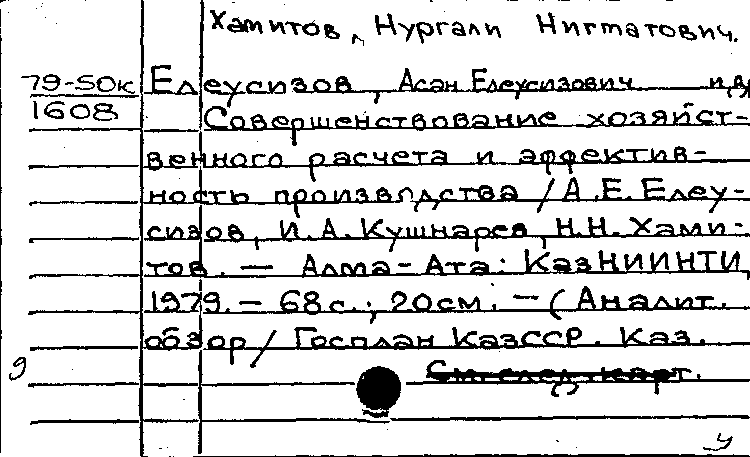 Хамитов, Нургали Нигматович.
79-50к Елеусизов, Асан Елеусизович и др
1608 Совершенствование хозяйст-
венного расчета и эффектив-
ность производства / А.Е. Елеу-
сизов, И.А. Кушнарев, Н.Н. Хами-
тов. — Алма-Ата: КазНИИНТИ,
1979. — 68 с.; 20 см. — (Аналит.
обзор / Госплан КазССР. Каз.
9 См. след. карт.